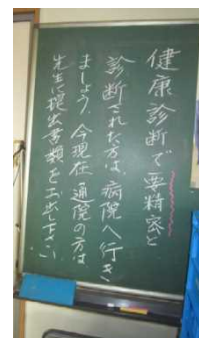 健康診断で要精密と
診断された方は、病院へ行き
ましょう。今現在通院の方は
先生に提出書類を出して下さい。